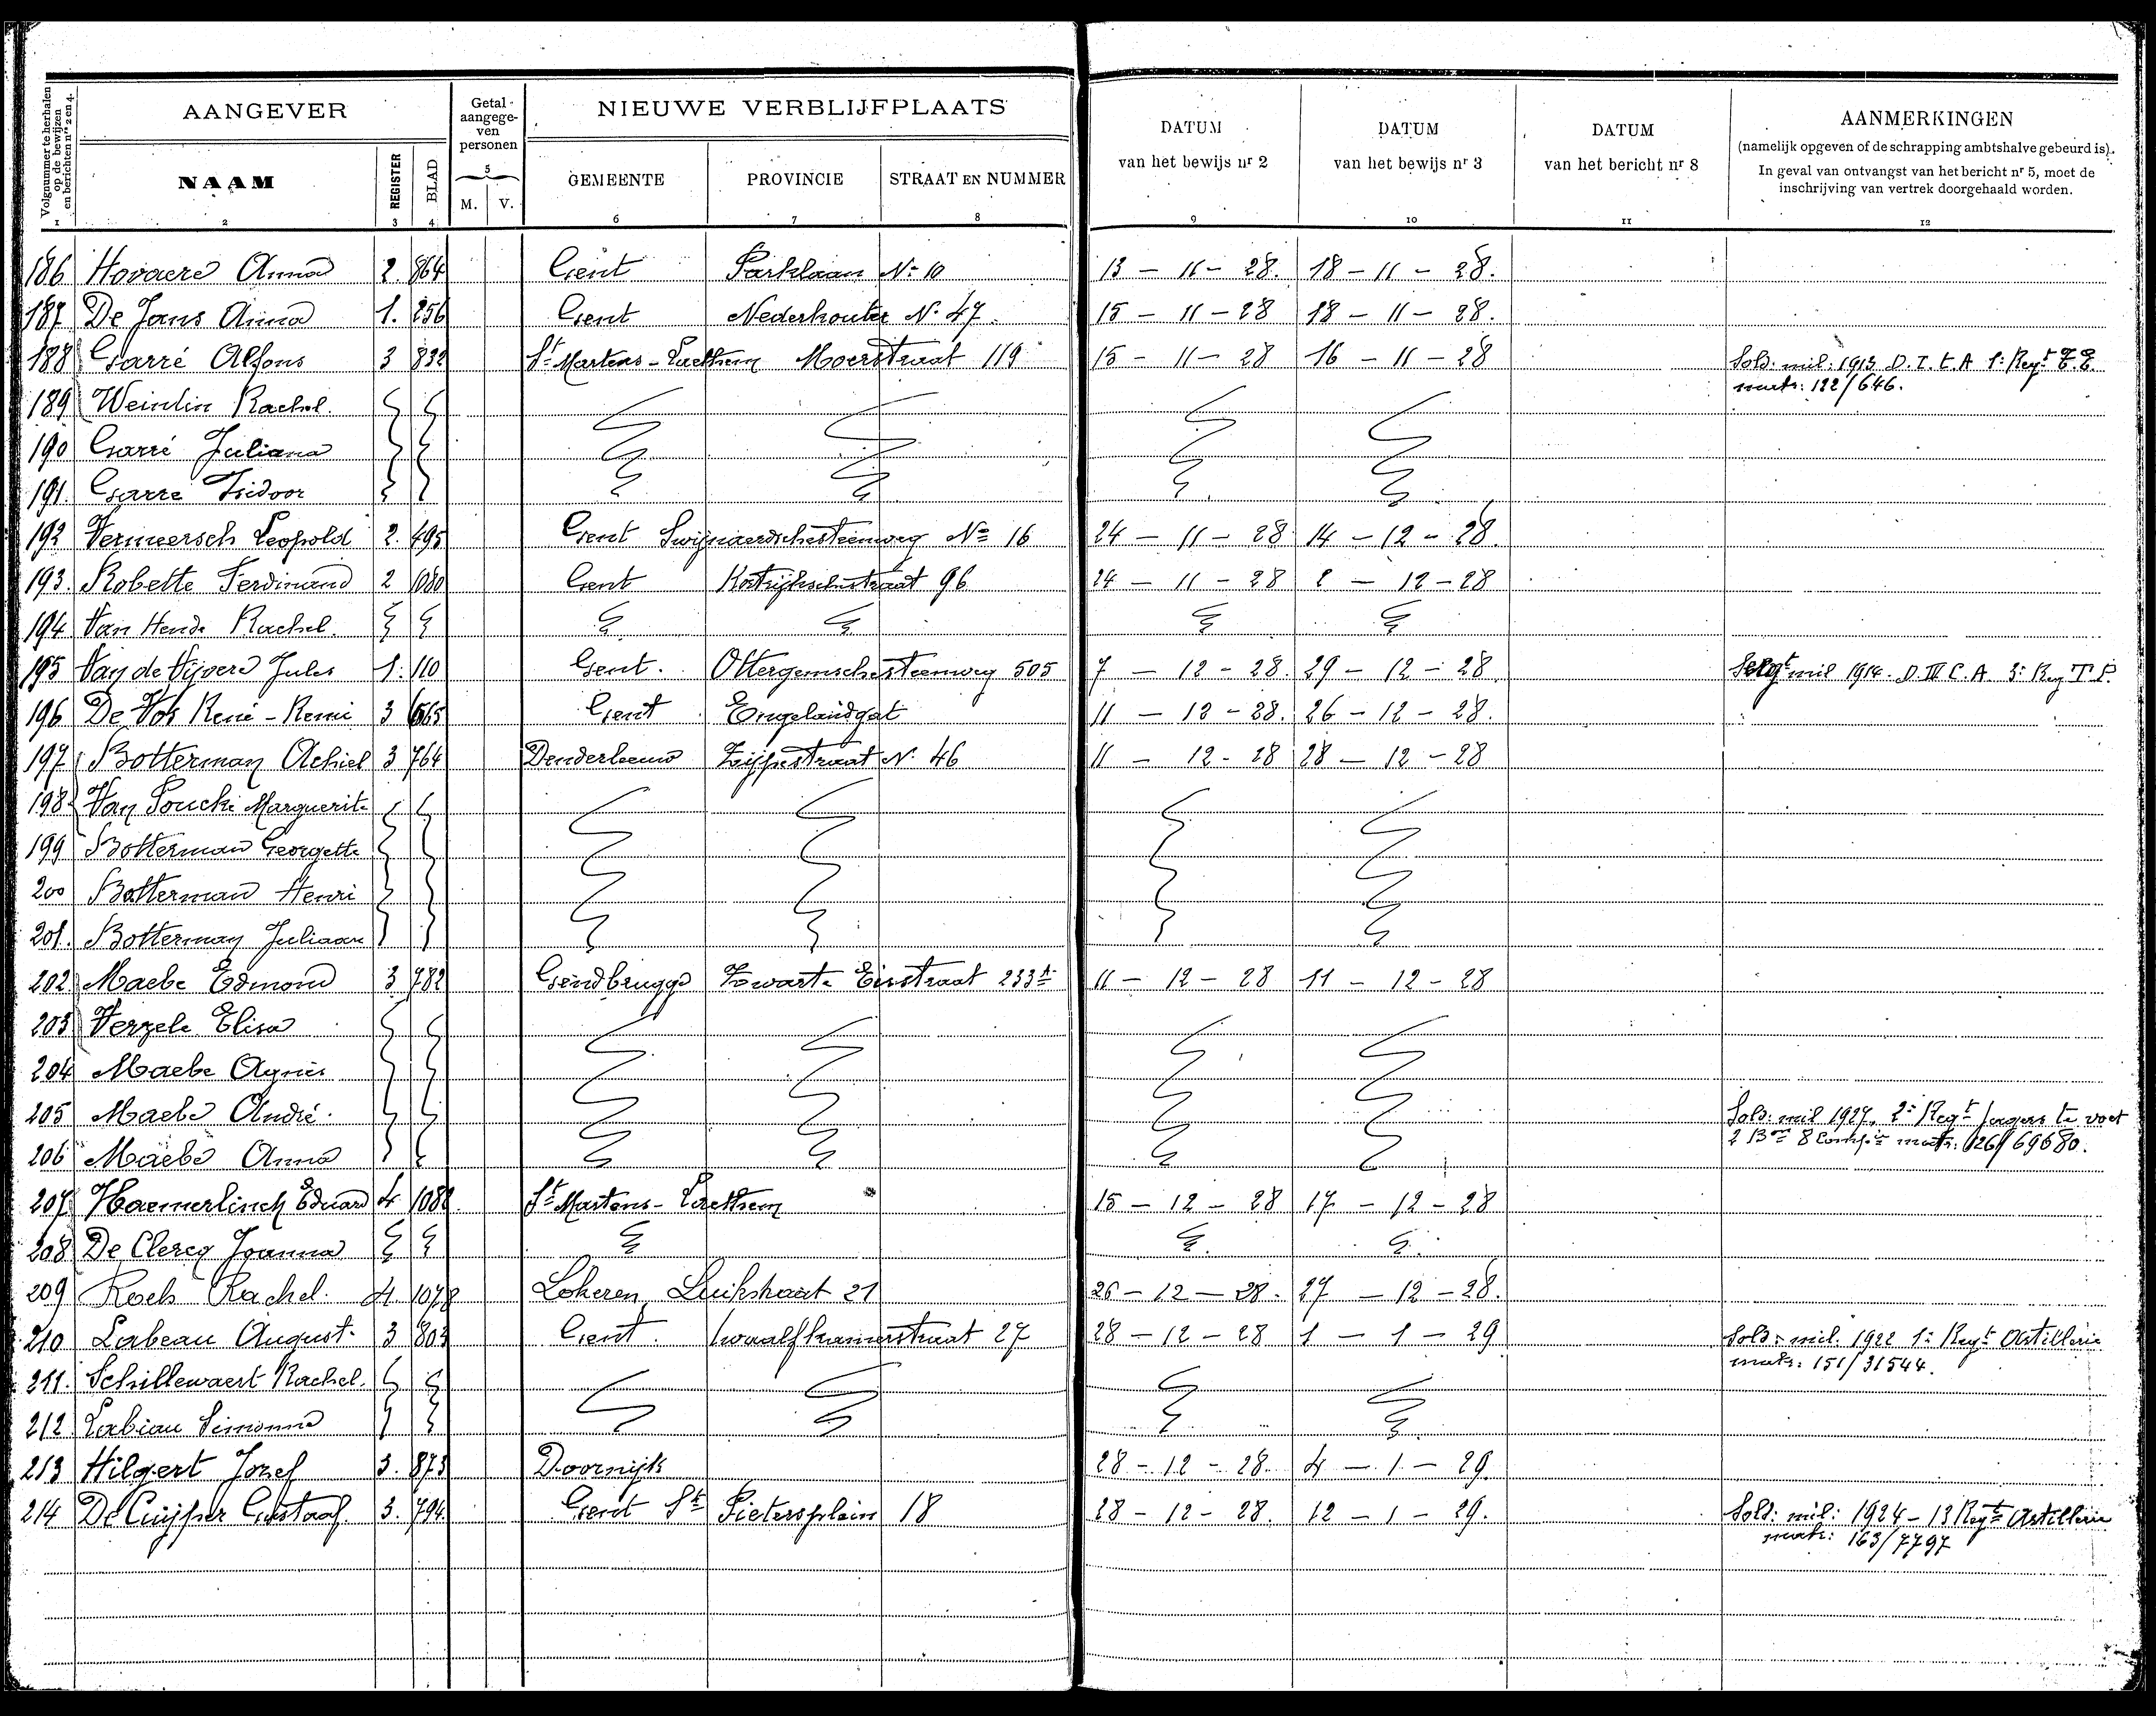 AANGEVER
Getal aangege-ven personen
NIEUWE VERBLIJFPLAATS
DATUM van het bewijs nr 2
DATUM van het bewijs nr 3
DATUM van het bericht nr 8
AANMERKINGEN
(namelijk opgeven of de schrapping ambtshalve gebeurd is).
In geval van ontvangst van het bericht nr 5, moet de
inschrijving van vertrek doorgehaald worden.
Volgnummer te herhalen op de bewijzen en berichten nrs 2 en 4.
NAAM REGISTER BLAD 5 M. V. GEMEENTE PROVINCIE STRAAT EN NUMMER
1 2 3 4 6 7 8 9 10 11 12
186 Hovaere Anna 2. 864 Gent Parklaan No 10 13 - 11 - 28. 18 - 11 - 28.
187 De Jans Anna 1. 256 Gent Nederhouter No 47. 15 - 11 - 28 18 - 11 - 28.
188 Garré Alfons 3 832 St Martens-Laethem Moerstraat 119 15 - 11 - 28 16 - 11 - 28 Sold: mil: 1913 D. I. C. A 1e Regt
matr: 122/646.
189 Weinlin Rachel.
190 Garré Juliana
191. Garré Isidoor
192 Vermeersch Leopold 2. 495 Gent Swijnaerdschesteenweg No 16 24 - 11 - 28 14 - 12 - 28.
193. Robette Ferdinand 2 1080 Gent Kortrijkschestraat 96 24 - 11 - 28 2 - 12 - 28
194 Van Hende Rachel.
195 Van de Vijvere Jules 1. 110 Gent. Ottergemschesteenweg 505 7 - 12 - 28. 29 - 12 - 28. Sergt mil 1914. D. III C. A. 3e Reg T. P.
196 De Vos René-Remi 3 665 Gent Engelandgat 11 - 12 - 28. 26 - 12 - 28.
197 Botterman Achiel 3 764 Denderleeuw Zijpestraat No 46 11 - 12 - 28 28 - 12 - 28
198 Van Poucke Marguerite
199 Botterman Georgette
200 Botterman Henri
201. Botterman Juliaan
202 Maebe Edmond 3 782 Gendbrugge Zwarte Eisstraat 233A 11 - 12 - 28 11 - 12 - 28
203 Verzele Elisa
204 Maebe Agnès
205 Maebe André. Sold: mil 1927, 2e Regt Jagers te voet
206 Maebe Anna 2 Bon 8 Compie matr: 126/69680.
207 Haemerlinck Eduard 4 1082 St Martens-Laethem 15 - 12 - 28 17 - 12 - 28
208 De Clercq Joanna
209 Roels Rachel. 4. 1078 Lokeren, Luikstraat 21 26 - 12 - 28. 27 - 12 - 28.
210 Labeau August. 3 803 Gent. Twaalfkamerstraat 27 28 - 12 - 28 1 - 1 - 29 Sold: mil. 1922 1e Regt Artillerie
matr: 151/31544.
211. Schillewaert Rachel.
212 Labiau Simonne
213 Hilgert Jozef 3. 873 Doornijk 28 - 12 - 28. 4 - 1 - 29.
214 De Cuijper Gustaaf. 3. 794. Gent St Pietersplein 18 28 - 12 - 28. 12 - 1 - 29. Sold: mil: 1924 - 13 Regt Artillerie
matr: 163/7797